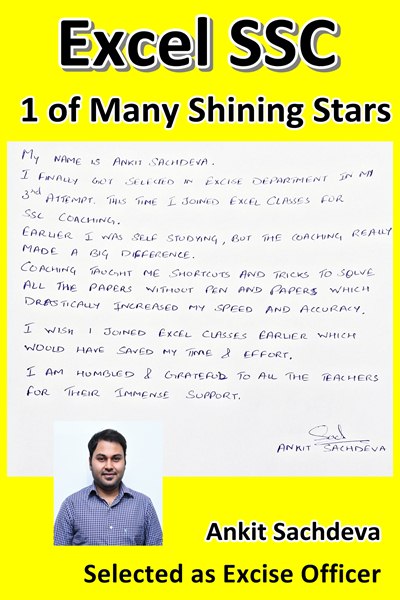 Excel SSC
1 of Many Shining Stars
MY NAME IS ANKIT SACHDEVA.
I FINALLY GOT SELECTED IN EXCISE DEPARTMENT IN MY
3rd ATTEMPT. THIS TIME I JOINED EXCEL CLASSES FOR
SSC COACHING.
EARLIER I WAS SELF STUDYING, BUT THE COACHING REALLY
MADE A BIG DIFFERENCE.
COACHING TAUGHT ME SHORTCUTS AND TRICKS TO SOLVE
ALL THE PAPERS WITHOUT PEN AND PAPERS WHICH
DRASTICALLY INCREASED MY SPEED AND ACCURACY.
I WISH I JOINED EXCEL CLASSES EARLIER WHICH
WOULD HAVE SAVED MY TIME & EFFORT.
I AM HUMBLED & GRATEFUL TO ALL THE TEACHERS
FOR THEIR IMMENSE SUPPORT.
ANKIT SACHDEVA
Ankit Sachdeva
Selected as Excise Officer